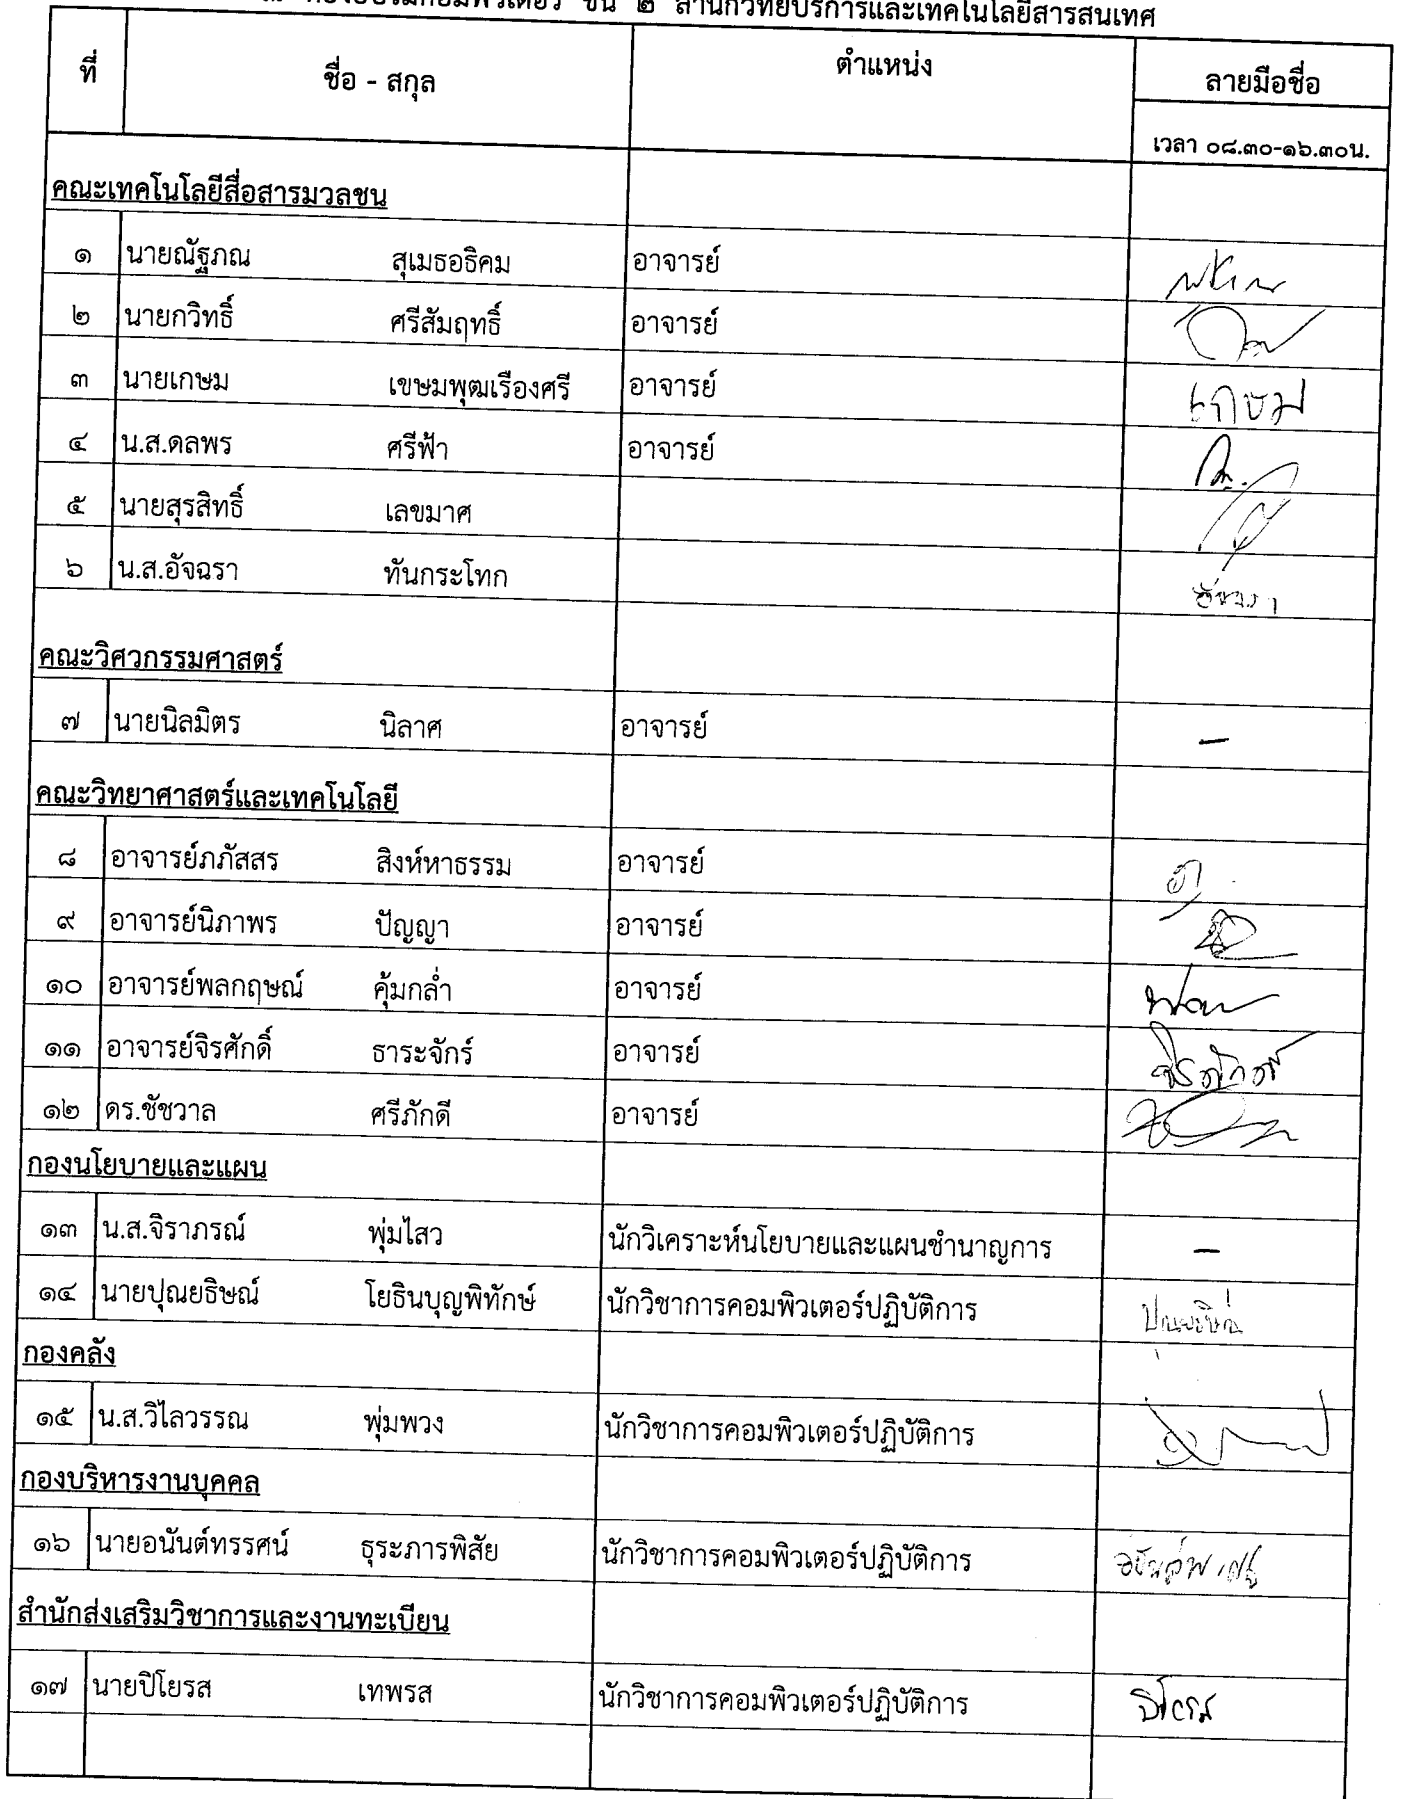 ณ ห้องอบรมคอมพิวเตอร์ ชั้น ๒ สำนักวิทยบริการและเทคโนโลยีสารสนเทศ
ที่ ชื่อ - สกุล ตำแหน่ง ลายมือชื่อ
เวลา ๐๘.๓๐-๑๖.๓๐น.
คณะเทคโนโลยีสื่อสารมวลชน
๑ นายณัฐภณ สุเมธอธิคม อาจารย์
๒ นายกวิทธิ์ ศรีสัมฤทธิ์ อาจารย์
๓ นายเกษม เขษมพุฒเรืองศรี อาจารย์ เกษม
๔ น.ส.ดลพร ศรีฟ้า อาจารย์
๕ นายสุรสิทธิ์ เลขมาศ
๖ น.ส.อัจฉรา ทันกระโทก อัจฉรา
คณะวิศวกรรมศาสตร์
๗ นายนิลมิตร นิลาศ อาจารย์ –
คณะวิทยาศาสตร์และเทคโนโลยี
๘ อาจารย์ภภัสสร สิงห์หาธรรม อาจารย์
๙ อาจารย์นิภาพร ปัญญา อาจารย์
๑๐ อาจารย์พลกฤษณ์ คุ้มกล่ำ อาจารย์
๑๑ อาจารย์จิรศักดิ์ ธาระจักร์ อาจารย์ จิรศักดิ์
๑๒ ดร.ชัชวาล ศรีภักดี อาจารย์
กองนโยบายและแผน
๑๓ น.ส.จิราภรณ์ พุ่มไสว นักวิเคราะห์นโยบายและแผนชำนาญการ –
๑๔ นายปุณยธิษณ์ โยธินบุญพิทักษ์ นักวิชาการคอมพิวเตอร์ปฏิบัติการ ปุณยธิษณ์
กองคลัง
๑๕ น.ส.วิไลวรรณ พุ่มพวง นักวิชาการคอมพิวเตอร์ปฏิบัติการ
กองบริหารงานบุคคล
๑๖ นายอนันต์ทรรศน์ ธุระภารพิสัย นักวิชาการคอมพิวเตอร์ปฏิบัติการ
สำนักส่งเสริมวิชาการและงานทะเบียน
๑๗ นายปิโยรส เทพรส นักวิชาการคอมพิวเตอร์ปฏิบัติการ ปิโยรส